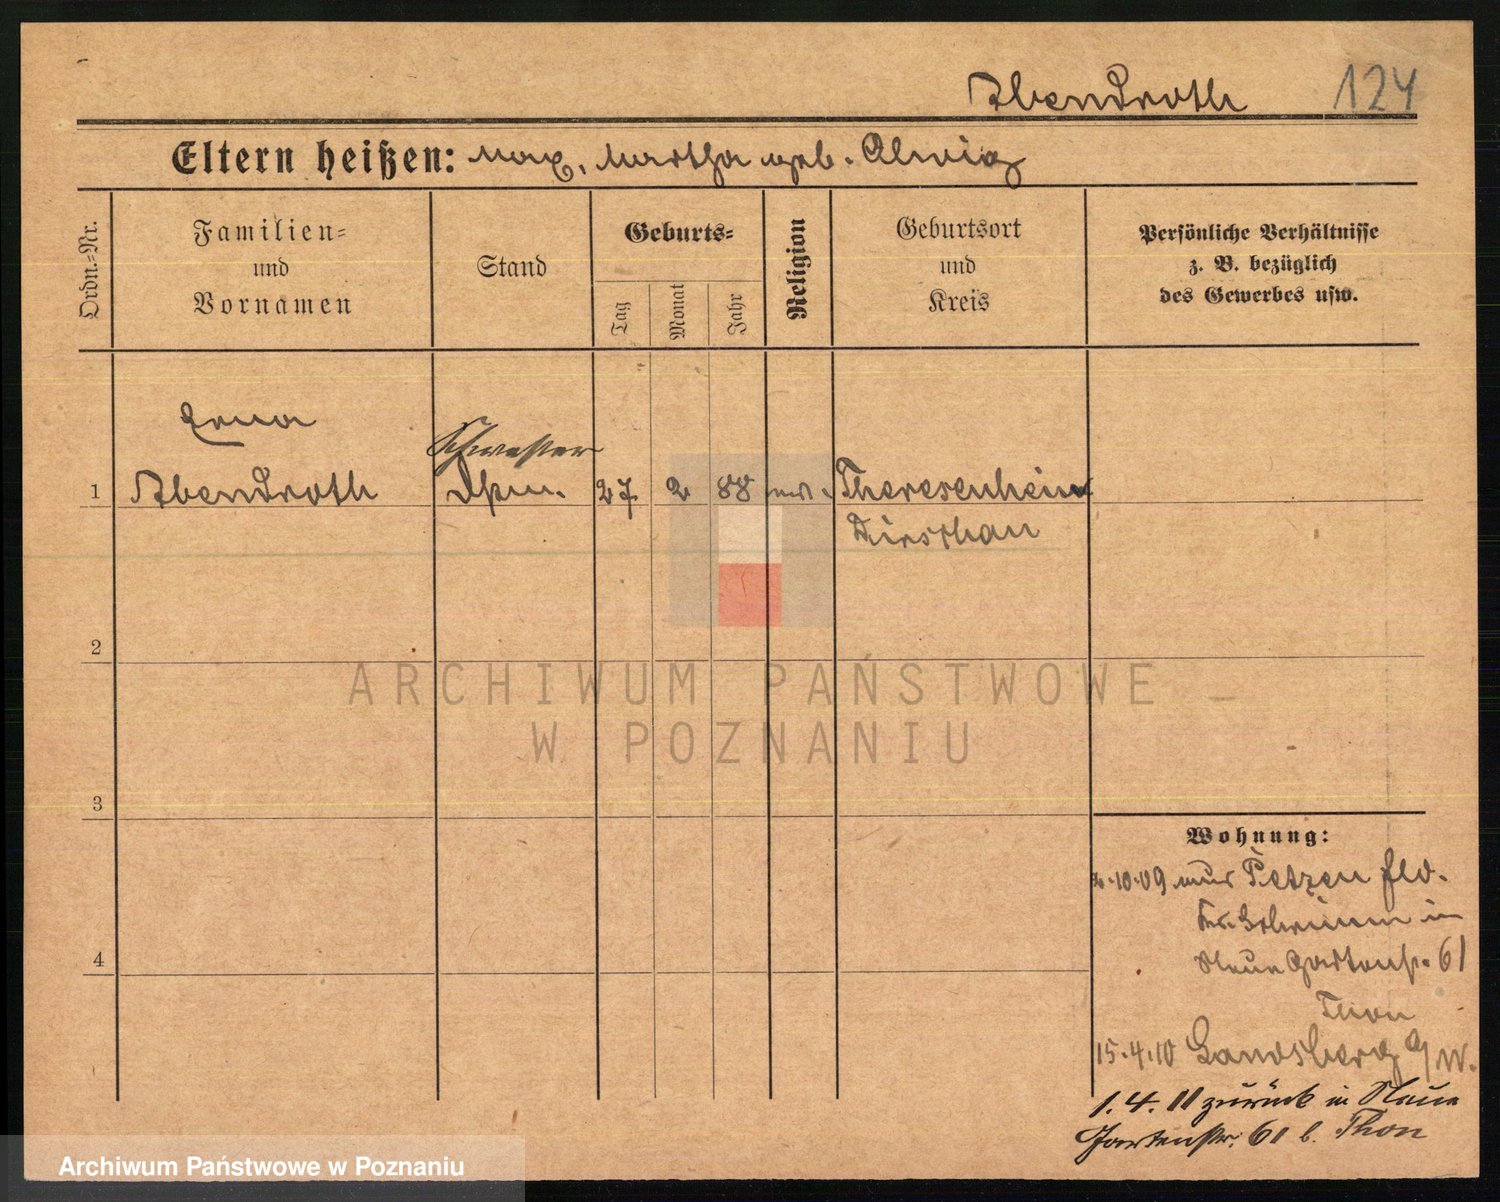 Abendroth 124
Eltern heißen: Max, Martha geb. Alwig
Ordn.=Nr.
Familien=
und
Vornamen
Stand
Geburts=
Tag
Monat
Jahr
Religion
Geburtsort
und
Kreis
Persönliche Verhältnisse
z. B. bezüglich
des Gewerbes usw.
Erna
Schwester
1 Abendroth 27 2 88 Theresenhein
Dirschau
2
ARCHIWUM PAŃSTWOWE
W POZNANIU
3
Wohnung:
10.09 aus Petzen
in
4
Neue Gartenstr. 61
Thon
15.4.10 Landsberg a/W.
1.4.11 zurück in Neue
Gartenstr. 61 b. Thon
Archiwum Państwowe w Poznaniu